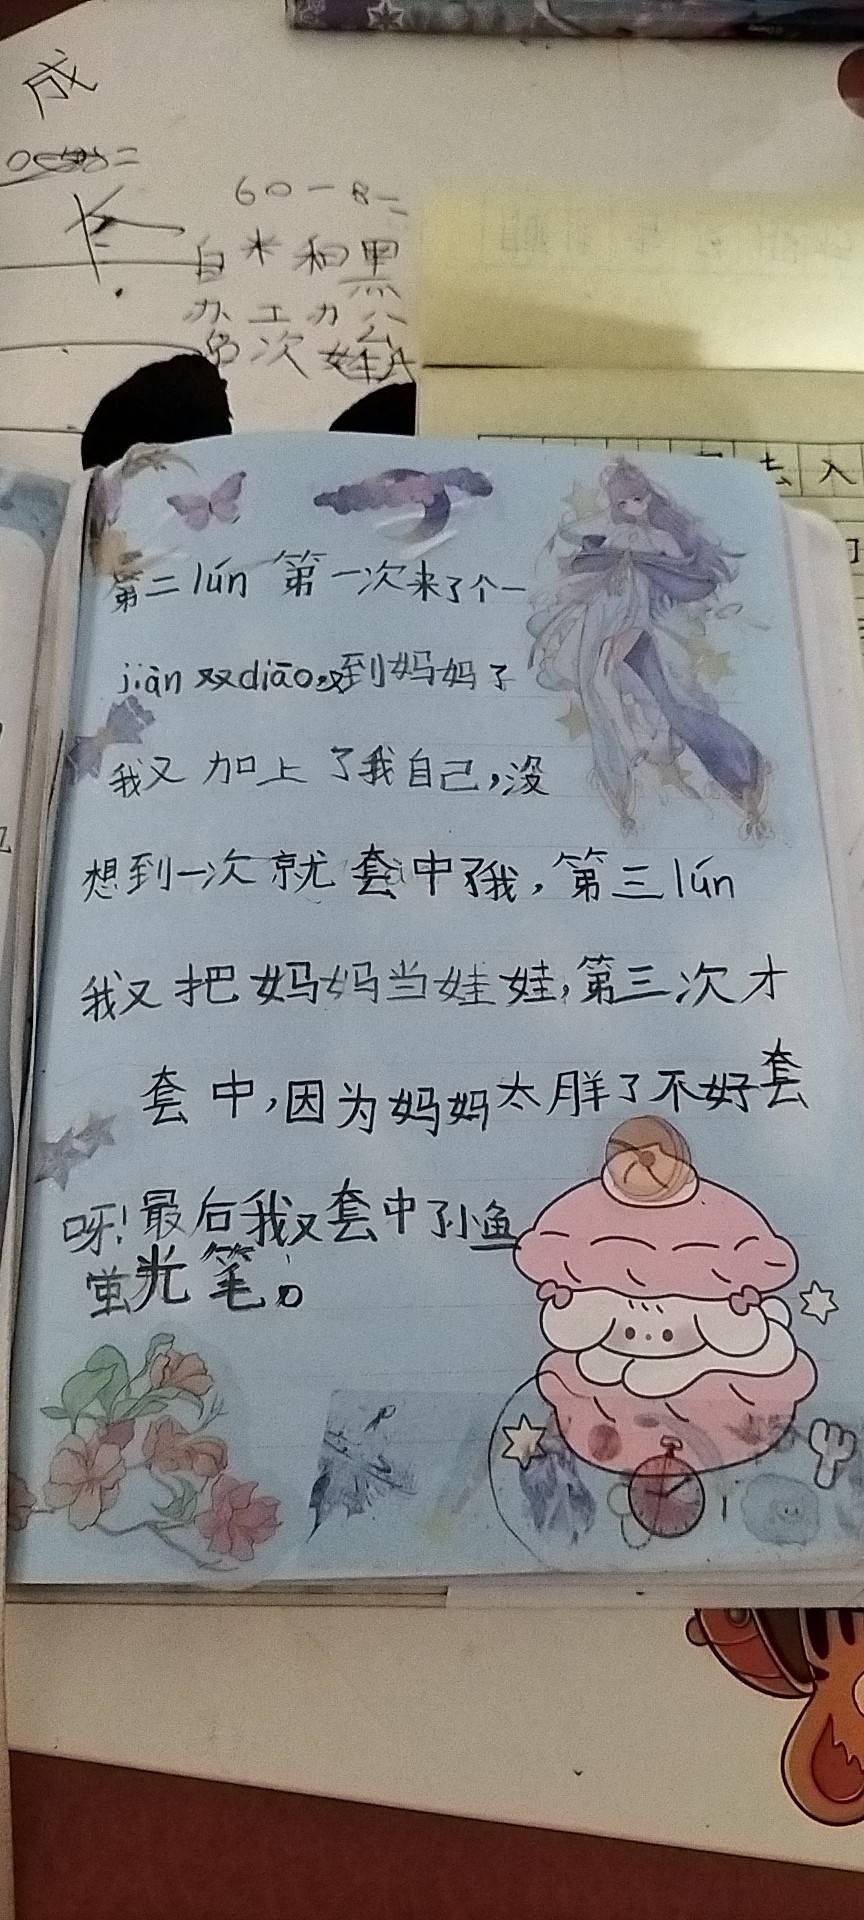 成
60-8=
白米和黑
办工办公
次娃
去入
第二lún 第一次来了个一
jiàn双diāo,又到妈妈了
我又加上了我自己,没
想到一次就套中了我,第三lún
我又把妈妈当娃娃,第三次才
套中,因为妈妈太胖了不好套
呀!最后我又套中了小鱼
萤光笔。